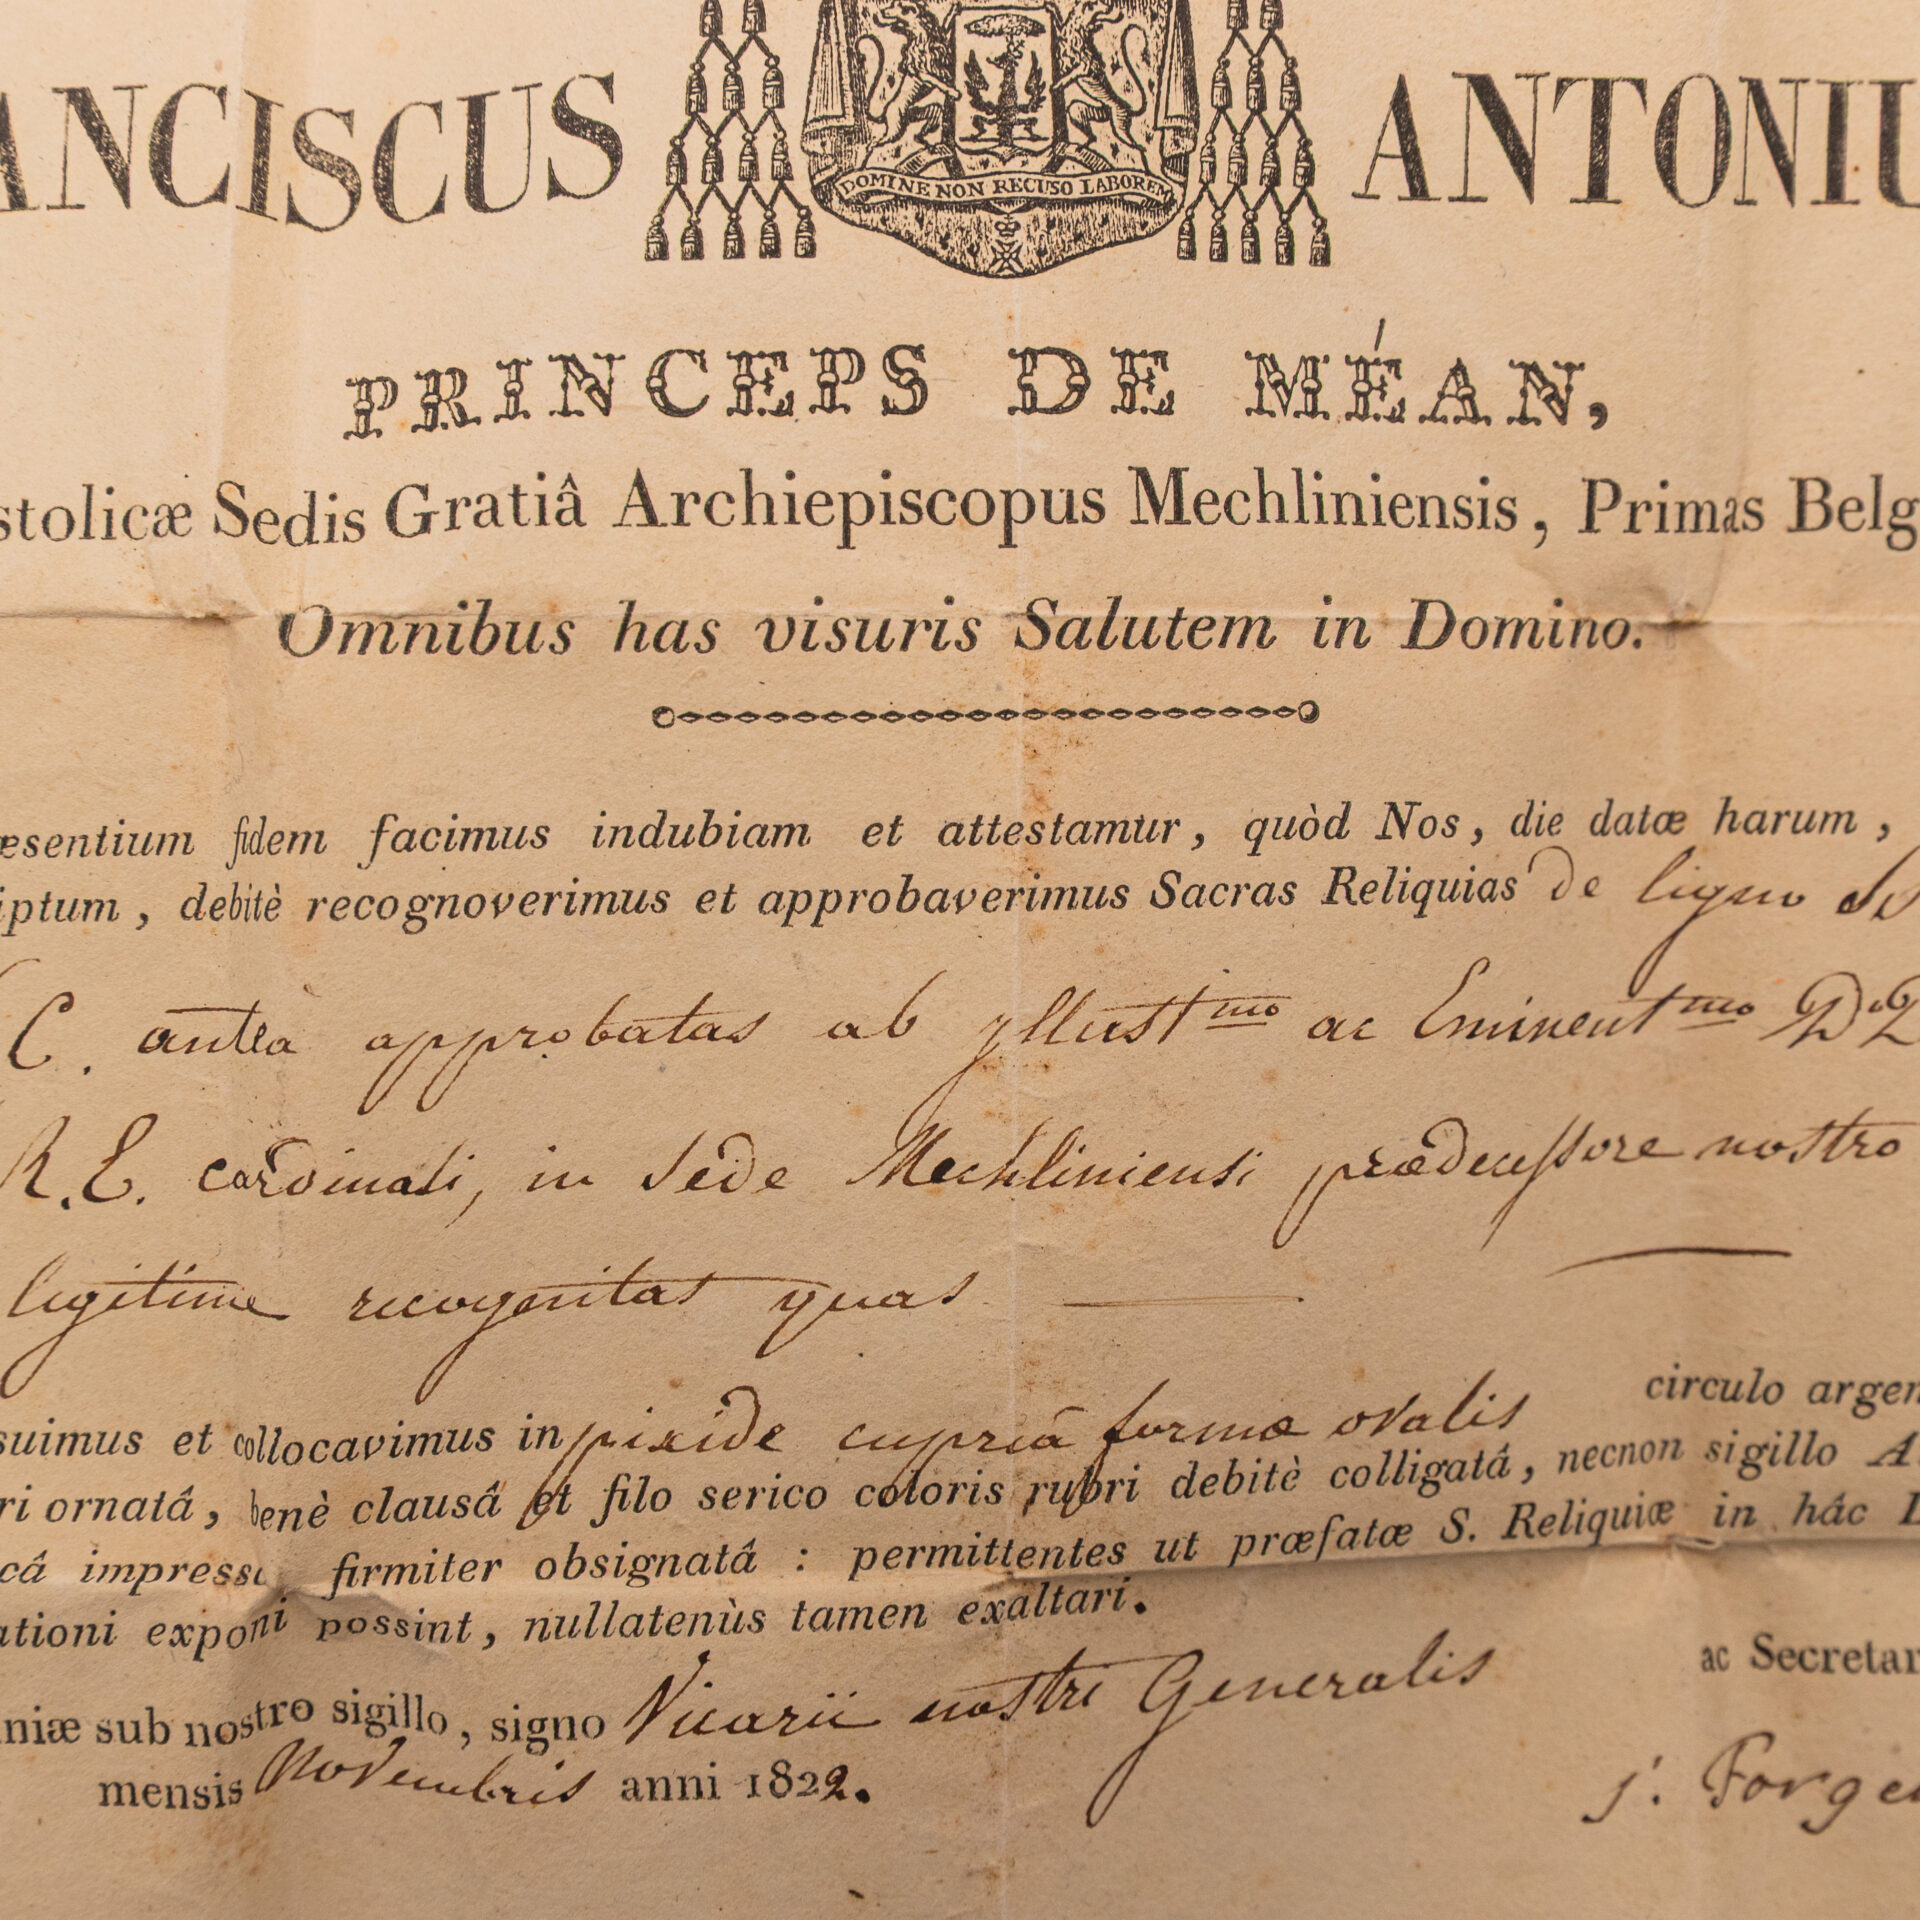 ANCISCUS ANTONIU
DOMINE NON RECUSO LABOREM
PRINCEPS DE MÉAN,
stolicæ Sedis Gratiâ Archiepiscopus Mechliniensis, Primas Belg
Omnibus has visuris Salutem in Domino.
æsentium fidem facimus indubiam et attestamur, quòd Nos, die datæ harum,
iptum, debitè recognoverimus et approbaverimus Sacras Reliquias de ligno
C. antea approbatas ab yllustmo ac Eminentmo
R. E. cardinali, in Sede Mechliniensi prædecessore nostro
legitime recognitas quas
suimus et collocavimus in pixide cupreâ formæ ovalis circulo argen
ri ornatâ, benè clausâ et filo serico coloris rubri debitè colligatâ, necnon sigillo A
câ impress firmiter obsignatâ : permittentes ut præfatæ S. Reliquiæ in hâc
ationi exponi possint, nullatenùs tamen exaltari.
niæ sub nostro sigillo, signo Vicarii nostri Generalis ac Secretar
mensis Novembris anni 1822. J. Forge